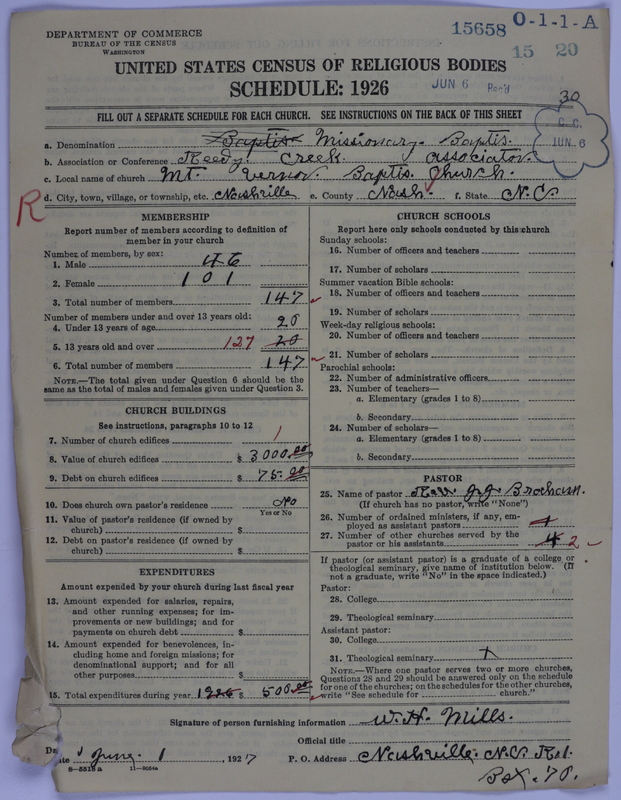 DEPARTMENT OF COMMERCE
BUREAU OF THE CENSUS
WASHINGTON
15658 O-1-1-A
15 20
UNITED STATES CENSUS OF RELIGIOUS BODIES
SCHEDULE: 1926
JUN 6 Rec'd
30
FILL OUT A SEPARATE SCHEDULE FOR EACH CHURCH. SEE INSTRUCTIONS ON THE BACK OF THIS SHEET
C. C.
JUN 6
a. Denomination Baptis Missionary Baptis.
b. Association or Conference Reedy Creek associator.
c. Local name of church Mt. Vernon Baptis Church.
d. City, town, village, or township, etc. Nashville e. County Nash f. State N.C.
R
MEMBERSHIP
Report number of members according to definition of
member in your church
Number of members, by sex:
1. Male 46
2. Female 101
3. Total number of members 147
Number of members under and over 13 years old:
4. Under 13 years of age 20
5. 13 years old and over 127 20
6. Total number of members 147
NOTE.—The total given under Question 6 should be the
same as the total of males and females given under Question 3.
CHURCH BUILDINGS
See instructions, paragraphs 10 to 12
7. Number of church edifices 1
8. Value of church edifices $ 3000.00
9. Debt on church edifices $ 75.00
10. Does church own pastor's residence No
Yes or No
11. Value of pastor's residence (if owned by
church) $
12. Debt on pastor's residence (if owned by
church) $
EXPENDITURES
Amount expended by your church during last fiscal year
13. Amount expended for salaries, repairs,
and other running expenses; for im-
provements or new buildings; and for
payments on church debt $
14. Amount expended for benevolences, in-
cluding home and foreign missions; for
denominational support; and for all
other purposes $
15. Total expenditures during year 1926 $ 500.00
CHURCH SCHOOLS
Report here only schools conducted by this church
Sunday schools:
16. Number of officers and teachers
17. Number of scholars
Summer vacation Bible schools:
18. Number of officers and teachers
19. Number of scholars
Week-day religious schools:
20. Number of officers and teachers
21. Number of scholars
Parochial schools:
22. Number of administrative officers
23. Number of teachers—
a. Elementary (grades 1 to 8)
b. Secondary
24. Number of scholars—
a. Elementary (grades 1 to 8)
b. Secondary
PASTOR
25. Name of pastor Rev
(If church has no pastor, write "None")
26. Number of ordained ministers, if any, em-
ployed as assistant pastors 1
27. Number of other churches served by the
pastor or his assistants 4 2
If pastor (or assistant pastor) is a graduate of a college or
theological seminary, give name of institution below. (If
not a graduate, write "No" in the space indicated.)
Pastor:
28. College
29. Theological seminary
Assistant pastor:
30. College
31. Theological seminary
NOTE.—Where one pastor serves two or more churches,
Questions 28 and 29 should be answered only on the schedule
for one of the churches; on the schedules for the other churches,
write "See schedule for church."
Signature of person furnishing information W. H. Mills.
Official title
Date June 1, 1927 P. O. Address Nashville N.C. R.1.
8-5518a 11-9054a
Box. 70.